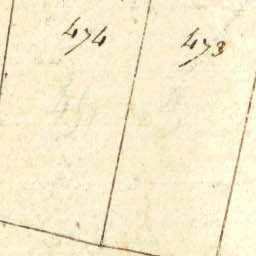 474 473